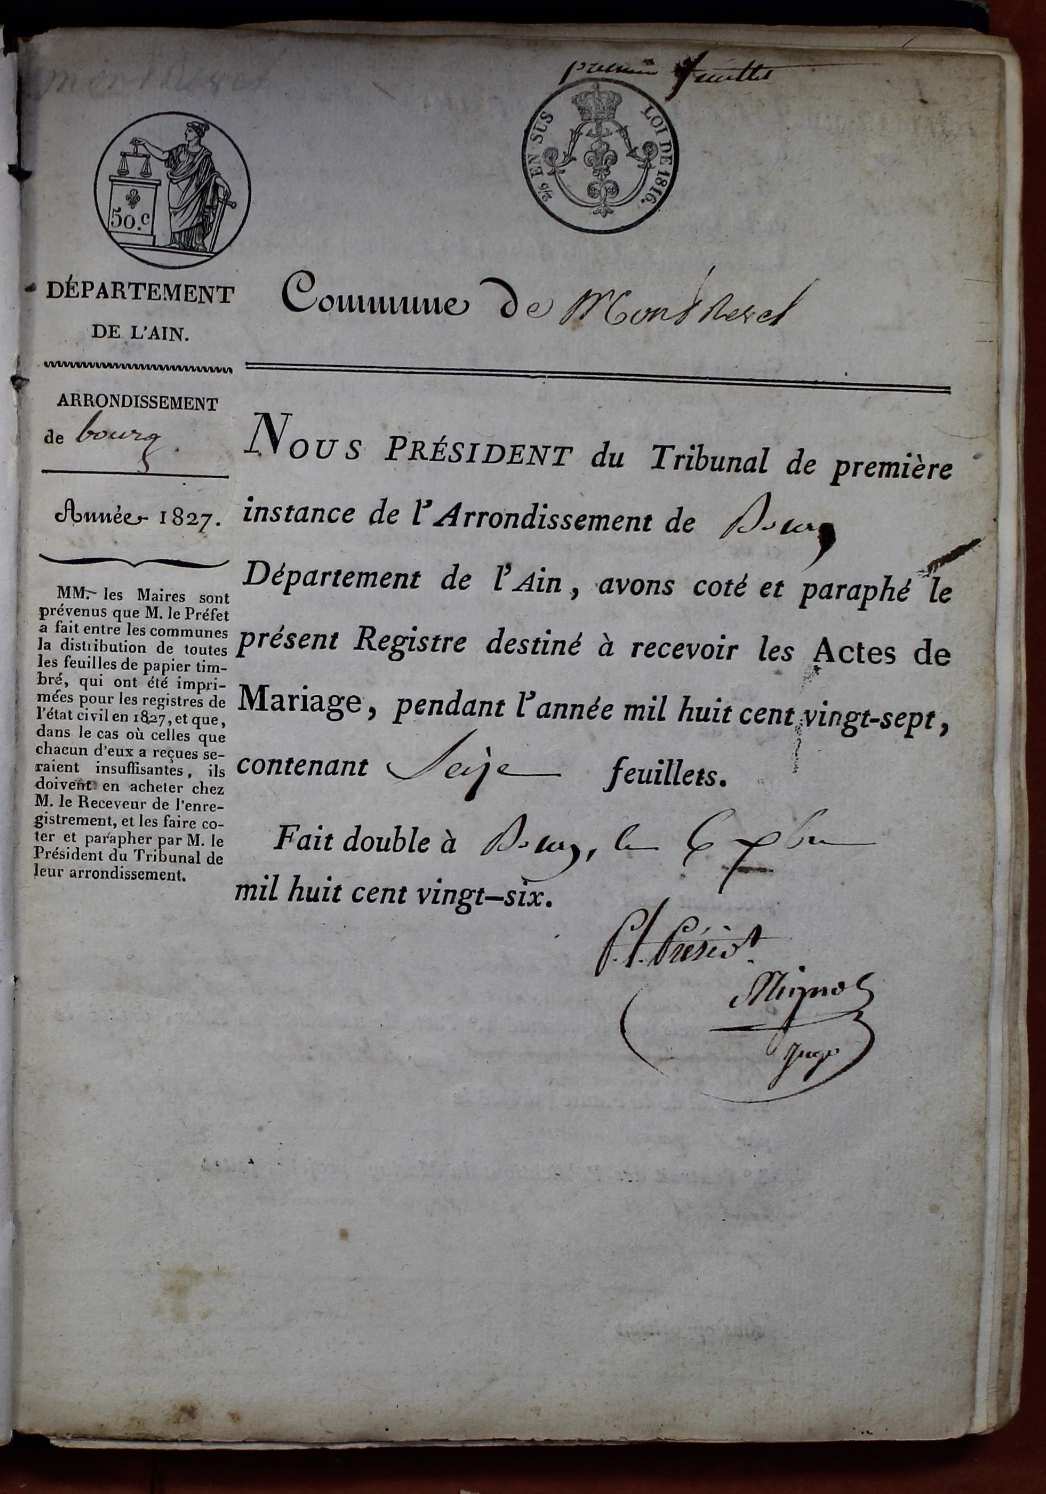 premier feuillet
2/5 EN SUS LOI DE 1816.
50.c
DÉPARTEMENT
DE L'AIN.
Commune de Montrevel
ARRONDISSEMENT
de bourg.
Année 1827.
MM. les Maires sont
prévenus que M. le Préfet
a fait entre les communes
la distribution de toutes
les feuilles de papier tim-
bré, qui ont été impri-
mées pour les registres de
l'état civil en 1827, et que,
dans le cas où celles que
chacun d'eux a reçues se-
raient insuffisantes, ils
doivent en acheter chez
M. le Receveur de l'enre-
gistrement, et les faire co-
ter et parapher par M. le
Président du Tribunal de
leur arrondissement.
NOUS PRÉSIDENT du Tribunal de première
instance de l'Arrondissement de Bourg
Département de l'Ain, avons coté et paraphé le
présent Registre destiné à recevoir les Actes de
Mariage, pendant l'année mil huit cent vingt-sept,
contenant Seize feuillets.
Fait double à Bourg, le 6 xbre
mil huit cent vingt-six.
P. l. Présidt.
Juge